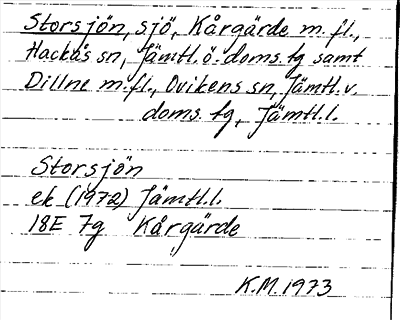 Storsjön, sjö, Kårgärde m.fl.,
Hackås sn, Jämtl.ö.doms.tg samt
Dillne m.fl., Ovikens sn, Jämtl.v.
doms.tg, Jämtl.l.
Storsjön
ek (1972) Jämtl.l.
18E 7g Kårgärde
K.M.1973